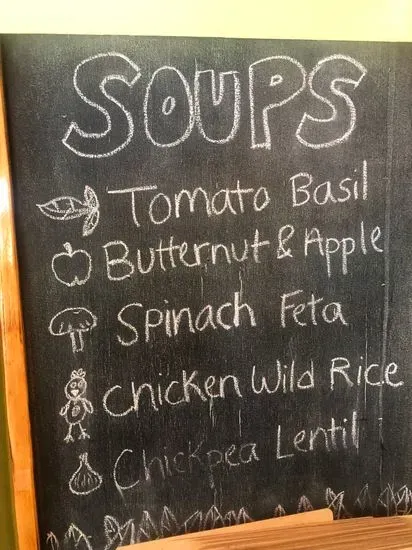 SOUPS
Tomato Basil
Butternut & Apple
Spinach Feta
Chicken Wild Rice
Chickpea Lentil